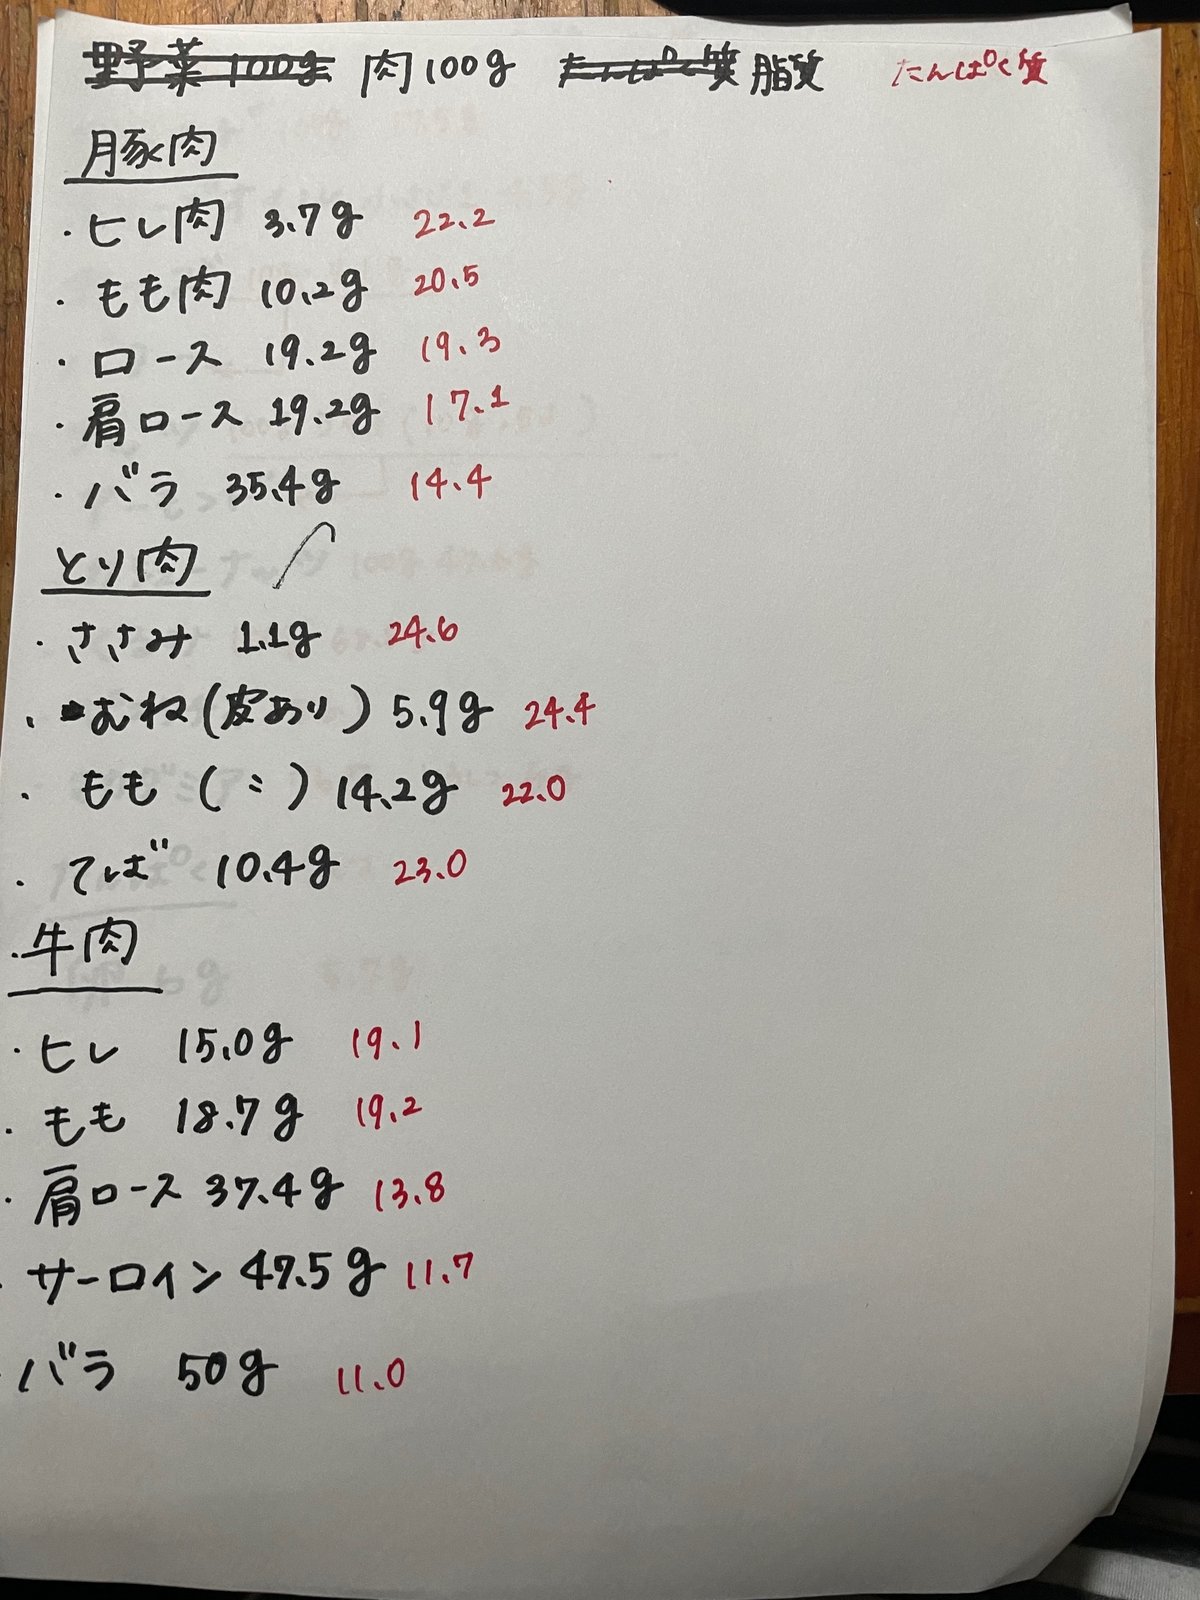 野菜 100g 肉100g たんぱく質 脂質 たんぱく質
豚肉
・ヒレ肉 3.7g 22.2
・もも肉 10.2g 20.5
・ロース 19.2g 19.3
・肩ロース 19.2g 17.1
・バラ 35.4g 14.4
とり肉
・ささみ 1.1g 24.6
・むね(皮あり) 5.9g 24.4
・もも (〃) 14.2g 22.0
・てば 10.4g 23.0
・牛肉
・ヒレ 15.0g 19.1
・もも 18.7g 19.2
・肩ロース 37.4g 13.8
・サーロイン 47.5g 11.7
・バラ 50g 11.0